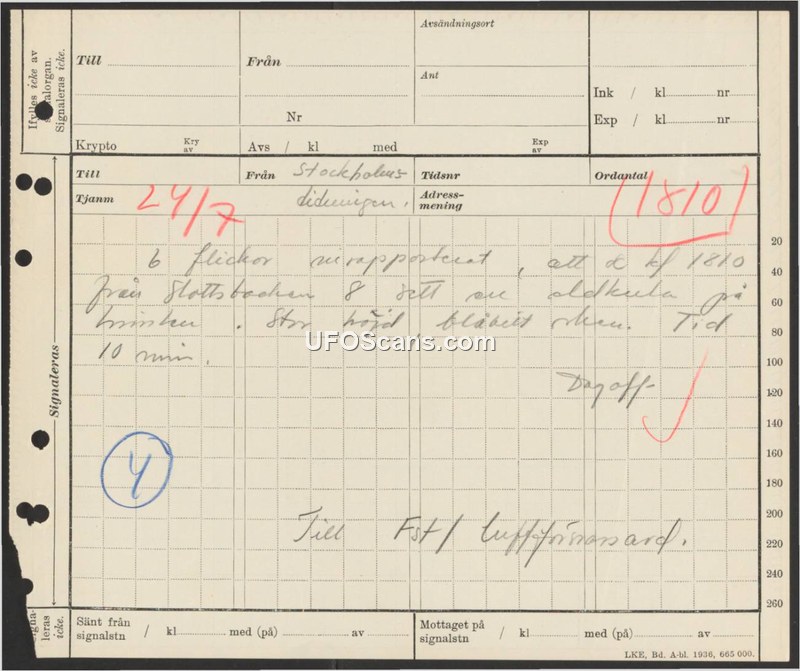 Ifylles icke av
signalorgan.
Signaleras icke.
Till
Från
Avsändningsort
Ant
Ink / kl nr
Exp / kl nr
Nr
Krypto
Kry av
Avs / kl med
Exp av
Till
Från Stockholms
Tidsnr
Ordantal
Tjanm
24/7
tidningen.
Adress-
mening
1810
6 flickor inrapporterat, att de kl 1810
från Slottsbacken 8 sett en eldkula på
himlen. Stor höjd blåvitt sken. Tid
10 min.
Dagoff
4
Till Fst/ Luftförsvarsavd.
Signaleras
20
40
60
80
100
120
140
160
180
200
220
240
260
UFOScans.com
Signa-
leras
icke.
Sänt från
signalstn / kl med (på) av
Mottaget på
signalstn / kl med (på) av
LKE, Bd. A-bl. 1936, 665 000.